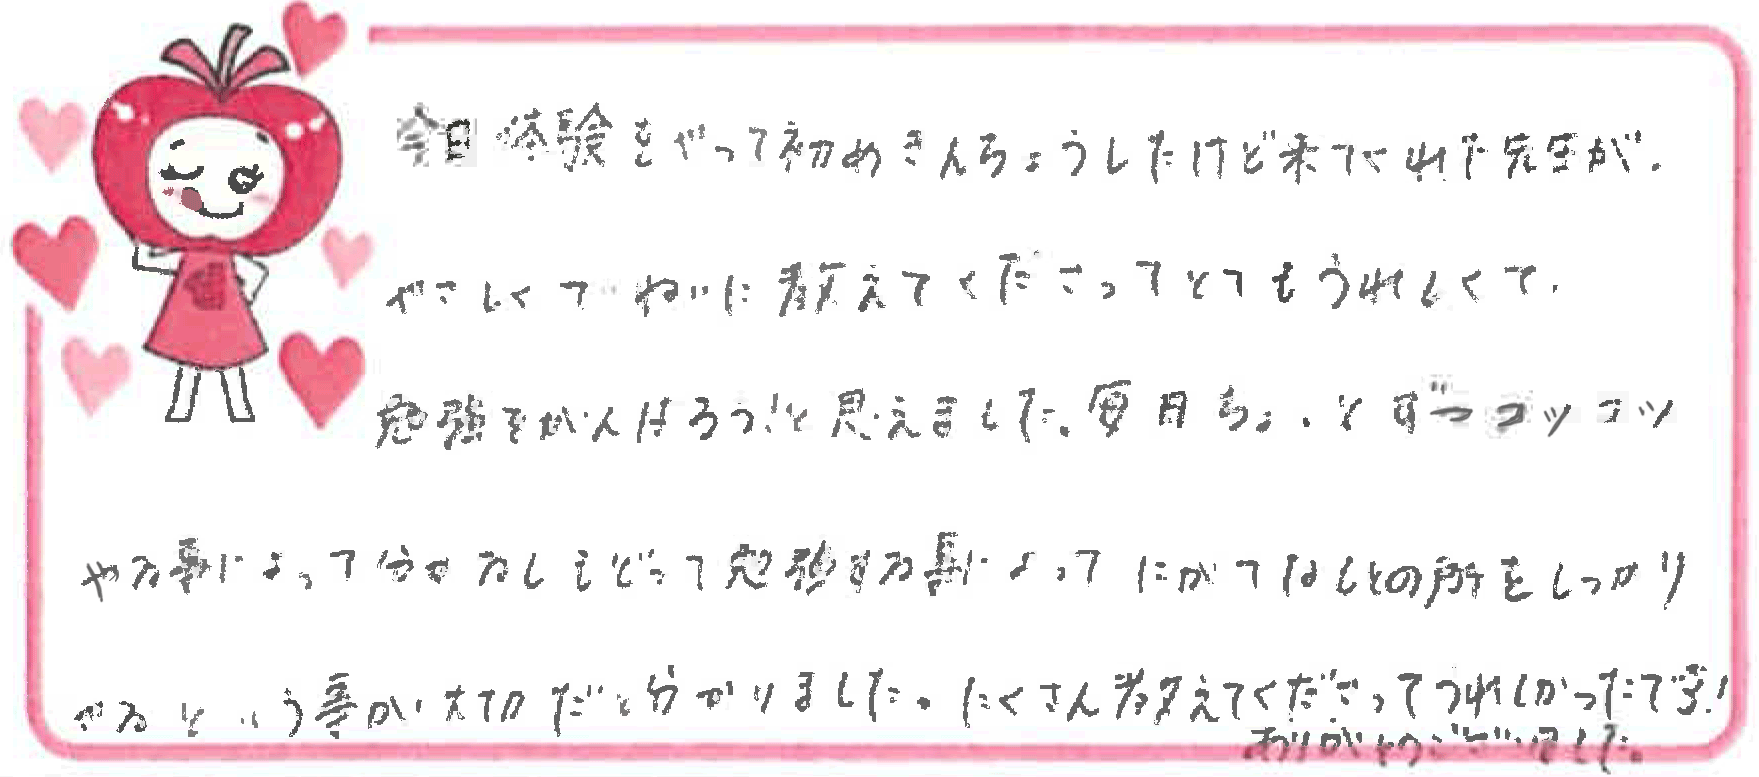 今日体験をやって初めきんちょうしたけど来てくれた先生が、
やさしくてねいに教えてくださってとてもうれしくて、
勉強をがんばろう！と思えました。毎日ちょっとずつコツコツ
やる事によって分 なしもどって勉強する事によってにがてなしとの所をしっかり
やるという事が大切だと分かりました。たくさん教えてくださってうれしかったです！
ありがとうございました。